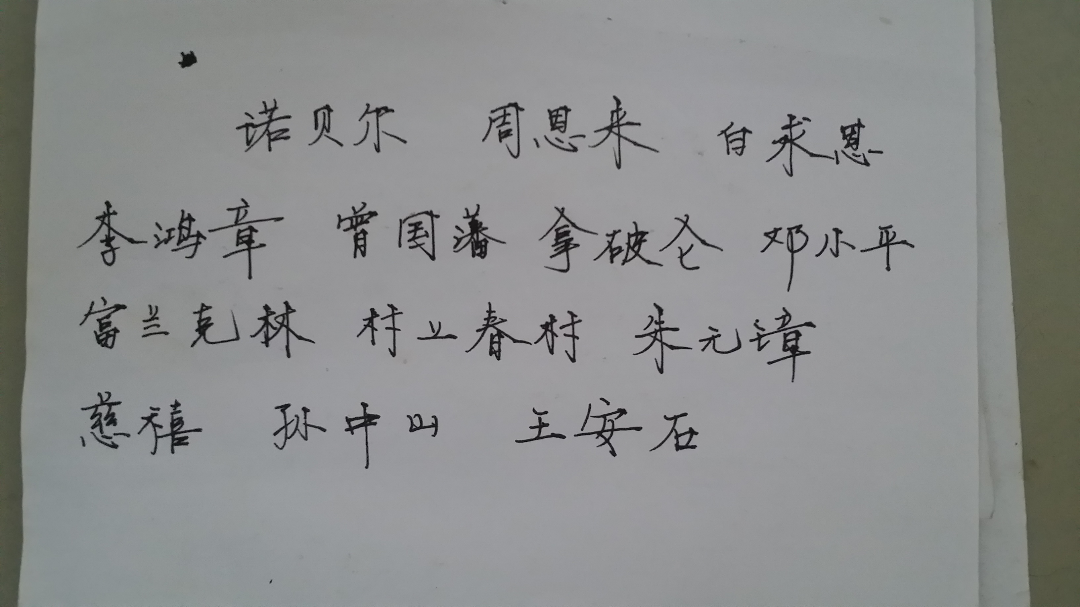 诺贝尔 周恩来 白求恩
李鸿章 曾国藩 拿破仑 邓小平
富兰克林 村上春村 朱元璋
慈禧 孙中山 王安石